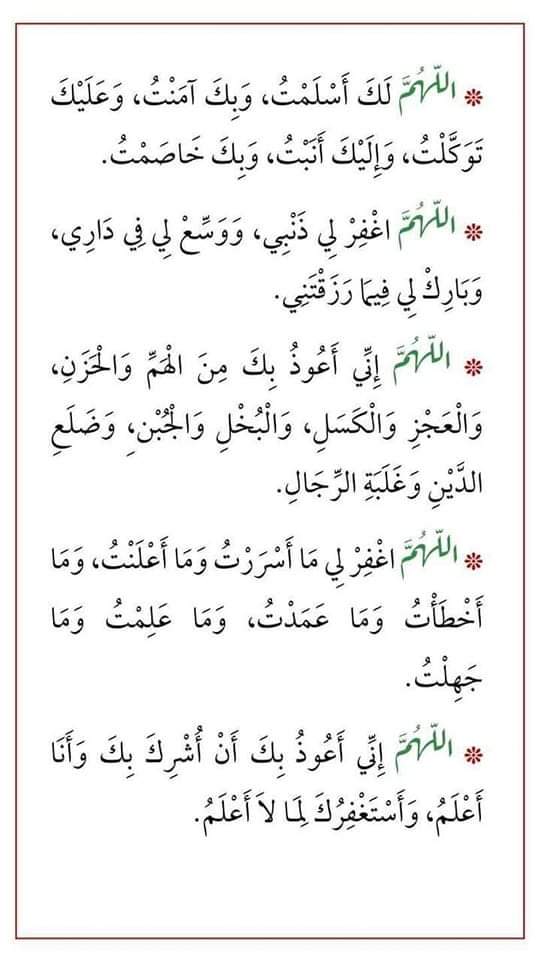 ❊ اللَّهُمَّ لَكَ أَسْلَمْتُ، وَبِكَ آمَنْتُ، وَعَلَيْكَ
تَوَكَّلْتُ، وَإِلَيْكَ أَنَبْتُ، وَبِكَ خَاصَمْتُ.
❊ اللَّهُمَّ اغْفِرْ لِي ذَنْبِي، وَوَسِّعْ لِي فِي دَارِي،
وَبَارِكْ لِي فِيمَا رَزَقْتَنِي.
❊ اللَّهُمَّ إِنِّي أَعُوذُ بِكَ مِنَ الْهَمِّ وَالْحَزَنِ،
وَالْعَجْزِ وَالْكَسَلِ، وَالْبُخْلِ وَالْجُبْنِ، وَضَلَعِ
الدَّيْنِ وَغَلَبَةِ الرِّجَالِ.
❊ اللَّهُمَّ اغْفِرْ لِي مَا أَسْرَرْتُ وَمَا أَعْلَنْتُ، وَمَا
أَخْطَأْتُ وَمَا عَمَدْتُ، وَمَا عَلِمْتُ وَمَا
جَهِلْتُ.
❊ اللَّهُمَّ إِنِّي أَعُوذُ بِكَ أَنْ أُشْرِكَ بِكَ وَأَنَا
أَعْلَمُ، وَأَسْتَغْفِرُكَ لِمَا لاَ أَعْلَمُ.